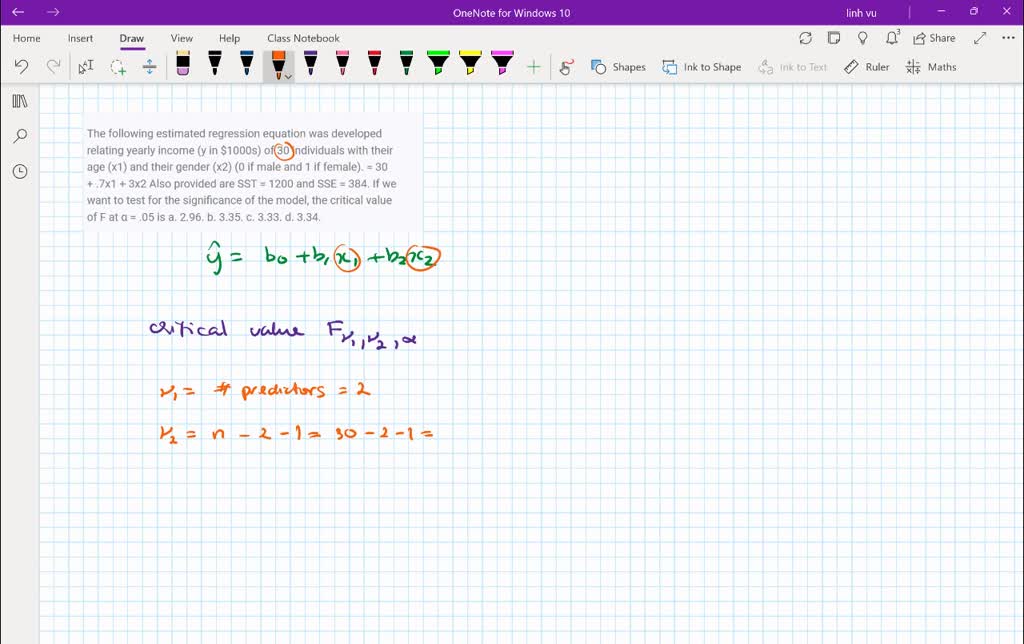 OneNote for Windows 10
linh vu
Home Insert Draw View Help Class Notebook
Share
Shapes Ink to Shape Ink to Text Ruler Maths
The following estimated regression equation was developed
relating yearly income (y in $1000s) of 30 individuals with their
age (x1) and their gender (x2) (0 if male and 1 if female). = 30
+ .7x1 + 3x2 Also provided are SST = 1200 and SSE = 384. If we
want to test for the significance of the model, the critical value
of F at α = .05 is a. 2.96. b. 3.35. c. 3.33. d. 3.34.
ŷ = b₀ + b₁x₁ + b₂x₂
critical value F ν₁, ν₂, α
ν₁ = # predictors = 2
ν₂ = n - 2 - 1 = 30 - 2 - 1 =